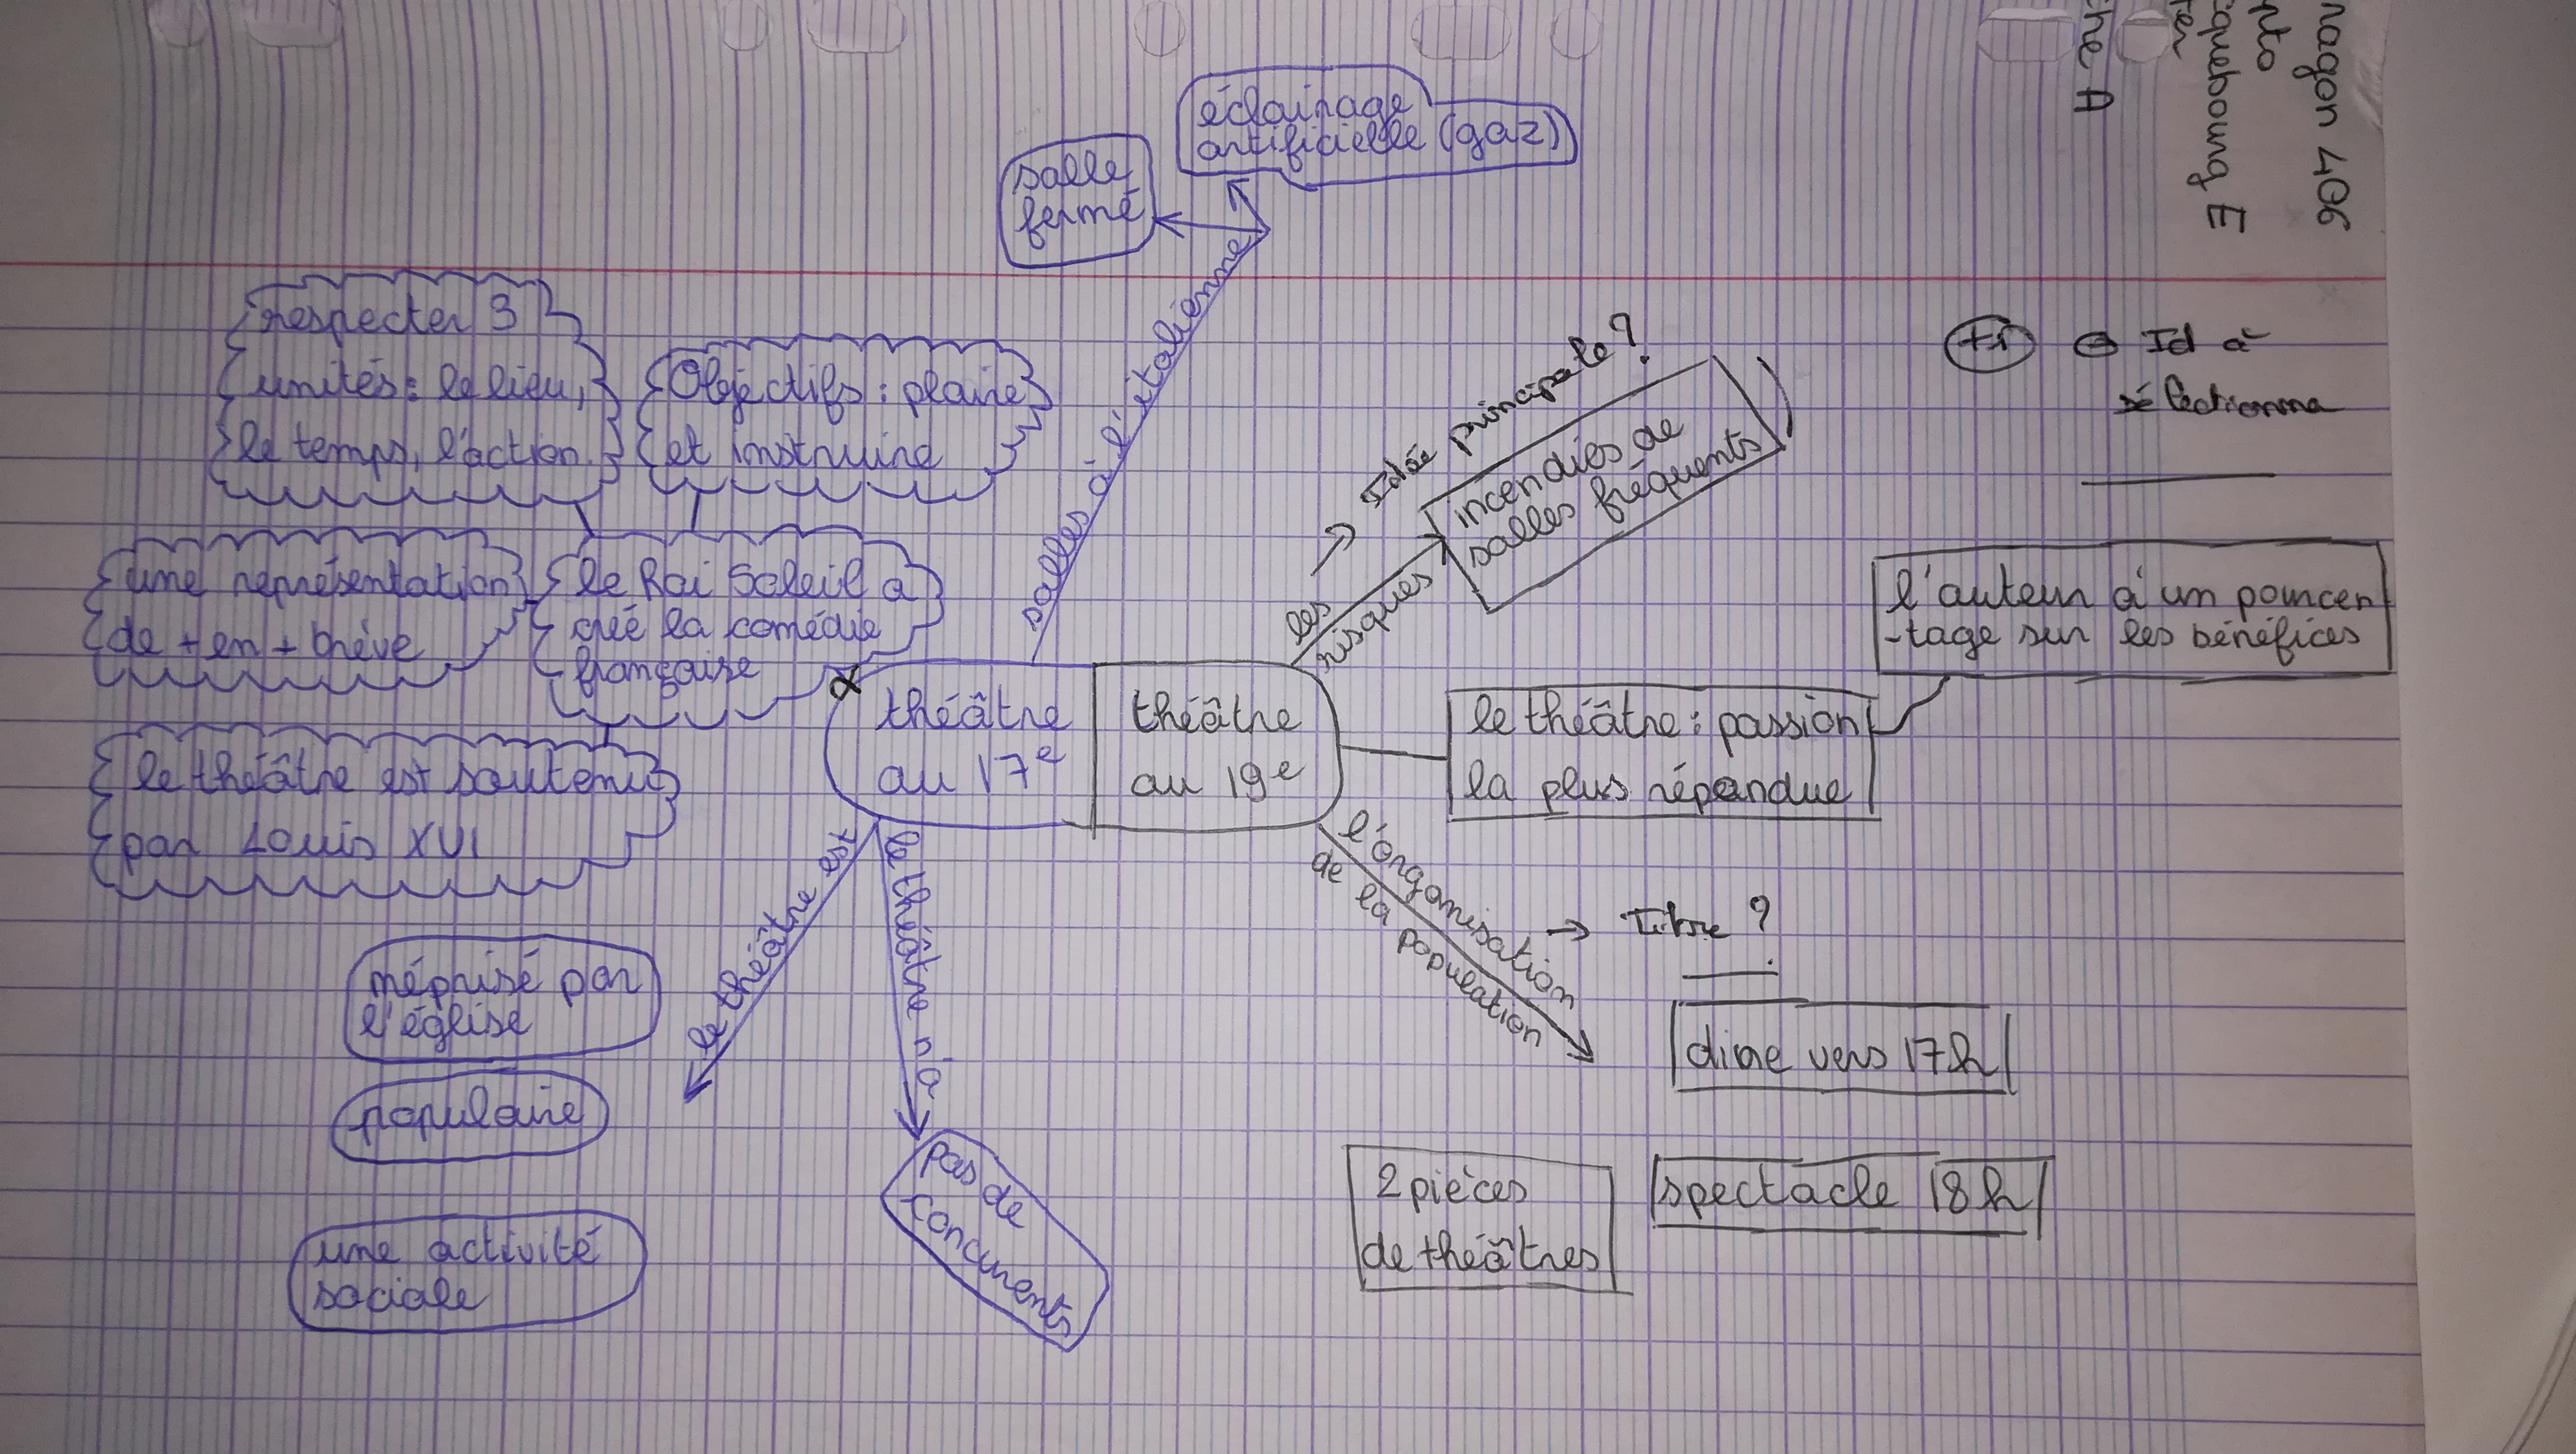 éclairage
artificielle (gaz)
salle
fermé
salles à l'italienne
respecter 3
unités : le lieu,
le temps, l'action
Objectifs : plaire
et instruire
une représentation
de + en + brève
le Roi Soleil a
créé la comédie
française
le théâtre est soutenu
par Louis XVI
théâtre
au 17e
théâtre
au 19e
le théâtre est
méprisé par
l'église
populaire
une activité
sociale
le théâtre n'a
pas de
concurrents
les
risques
→ Idée principale ?
incendies de
salles fréquents
le théâtre : passion
la plus répandue
l'auteur à un pourcen
-tage sur les bénéfices
l'organisation
de la population
→ Titre ?
dine vers 17h
spectacle 18h
2 pièces
de théâtres
Id à
sélectionna
ragon 406
pto
cquebourg E
ter
che A